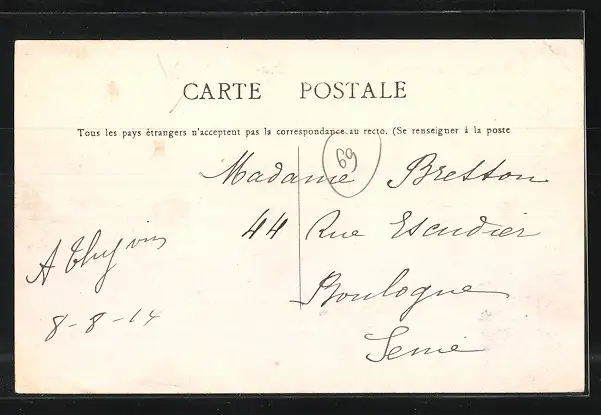 CARTE POSTALE
Tous les pays étrangers n'acceptent pas la correspondance au recto. (Se renseigner à la poste
69
Madame Bresson
44 Rue Escudier
Boulogne
Seine
8-8-14